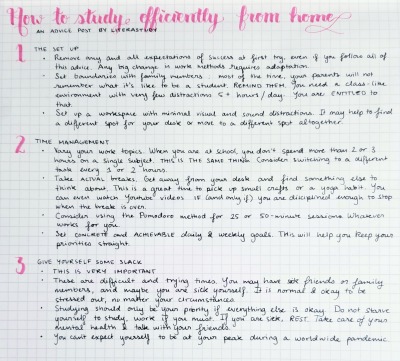 How to study efficiently from home
AN ADVICE POST BY LITERASTUDY
1 THE SET UP
• Remove any and all expectations of success at first try, even if you follow all
of this advice. Any big change in work methods requires adaptation.
• Set boundaries with family members: most of the time, your parents will not
remember what it's like to be a student. REMIND THEM. You need a class-like
environment with very few distractions 5+ hours/day. You are ENTITLED to
that.
• Set up a workspace with minimal visual and sound distractions. It may help to find
a different spot for your desk or move to a different spot altogether.
2 TIME MANAGEMENT
• Vary your work topics. When you are at school, you don't spend more than 2 or 3
hours on a single subject. THIS IS THE SAME THING. Consider switching to a different
task every 1 or 2 hours.
• Take ACTUAL breaks. Get away from your desk and find something else to
think about. This is a great time to pick up small crafts or a yoga habit. You
can even watch Youtube videos IF (and only if) you are disciplined enough to stop
when the break is over.
• Consider using the Pomodoro method for 25 or 50-minute sessions. Whatever
works for you.
• Set CONCRETE and ACHIEVABLE daily & weekly goals. This will help you keep your
priorities straight.
3 GIVE YOURSELF SOME SLACK
• THIS IS VERY IMPORTANT
• These are difficult and trying times. You may have sick friends or family
members, and maybe you are sick yourself. It is normal & okay to be
stressed out, no matter your circumstances.
• Studying should only be your priority if everything else is okay. Do not starve
yourself to study, work if you must. If you are sick, REST. Take care of your
mental health & talk with your friends.
• You can't expect yourself to be at your peak during a worldwide pandemic.